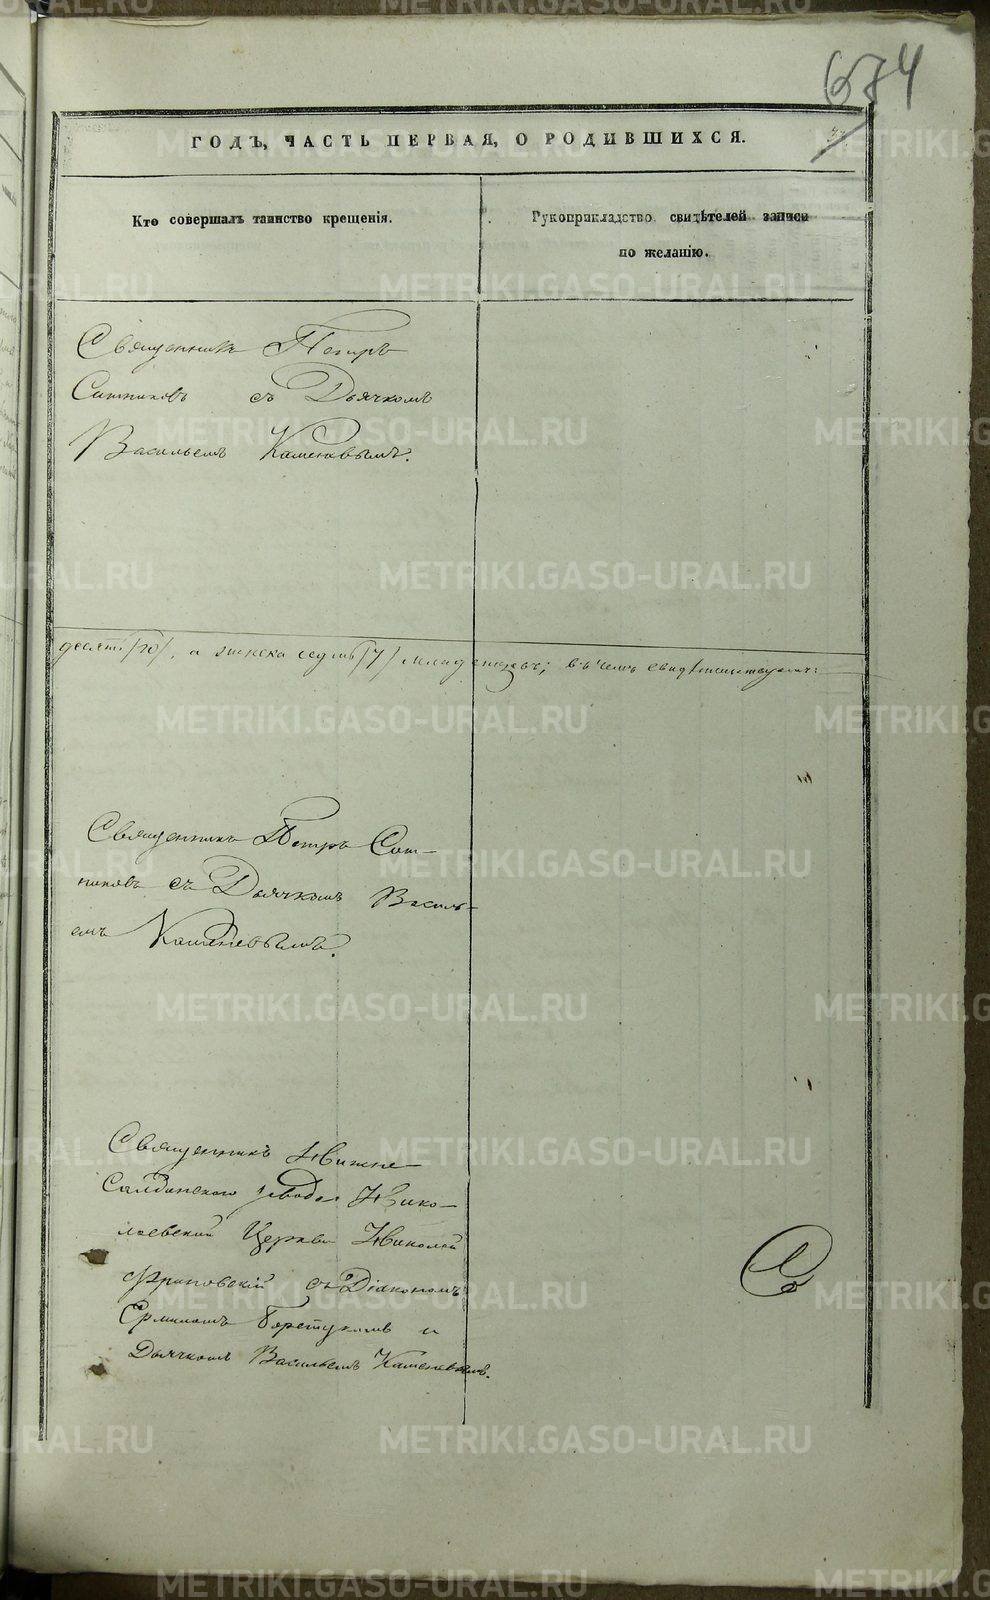 674
ГОДЪ, ЧАСТЬ ПЕРВАЯ, О РОДИВШИХСЯ.
Кто совершалъ таинство крещенія.
Рукоприкладство свидѣтелей записи
по желанію.
Священникъ Петръ
Сотниковъ съ Дьячкомъ
Васильемъ Каменевымъ.
десять /10/, а женска седмь /7/ младенцовъ; въ чемъ свидѣтельствуемъ:
Священникъ Петръ Сот-
никовъ съ Дьячкомъ Василь-
емъ Каменевымъ.
Священникъ Нижне-
Салдинскаго завода Нико-
лаевской Церкви Николай
съ Діакономъ
и
Дьячкомъ Васильемъ Каменевымъ.
METRIKI.GASO-URAL.RU